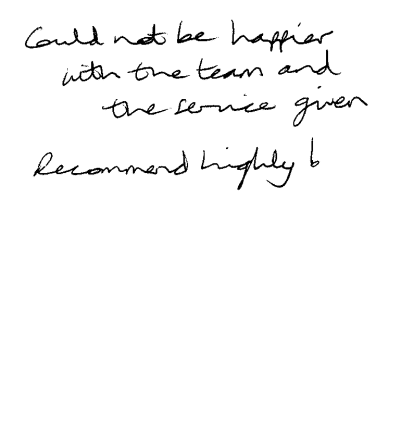 Could not be happier
with the team and
the service given
Recommend highly